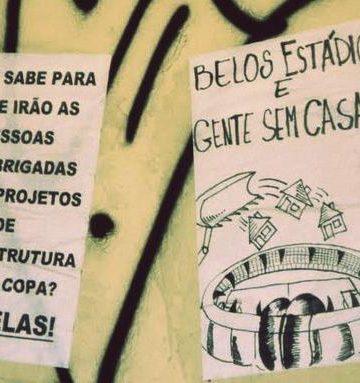 SABE PARA
E IRÃO AS
ESSOAS
BRIGADAS
PROJETOS
DE
STRUTURA
COPA?
ELAS!
BELOS ESTÁDIO
E
GENTE SEM CASA